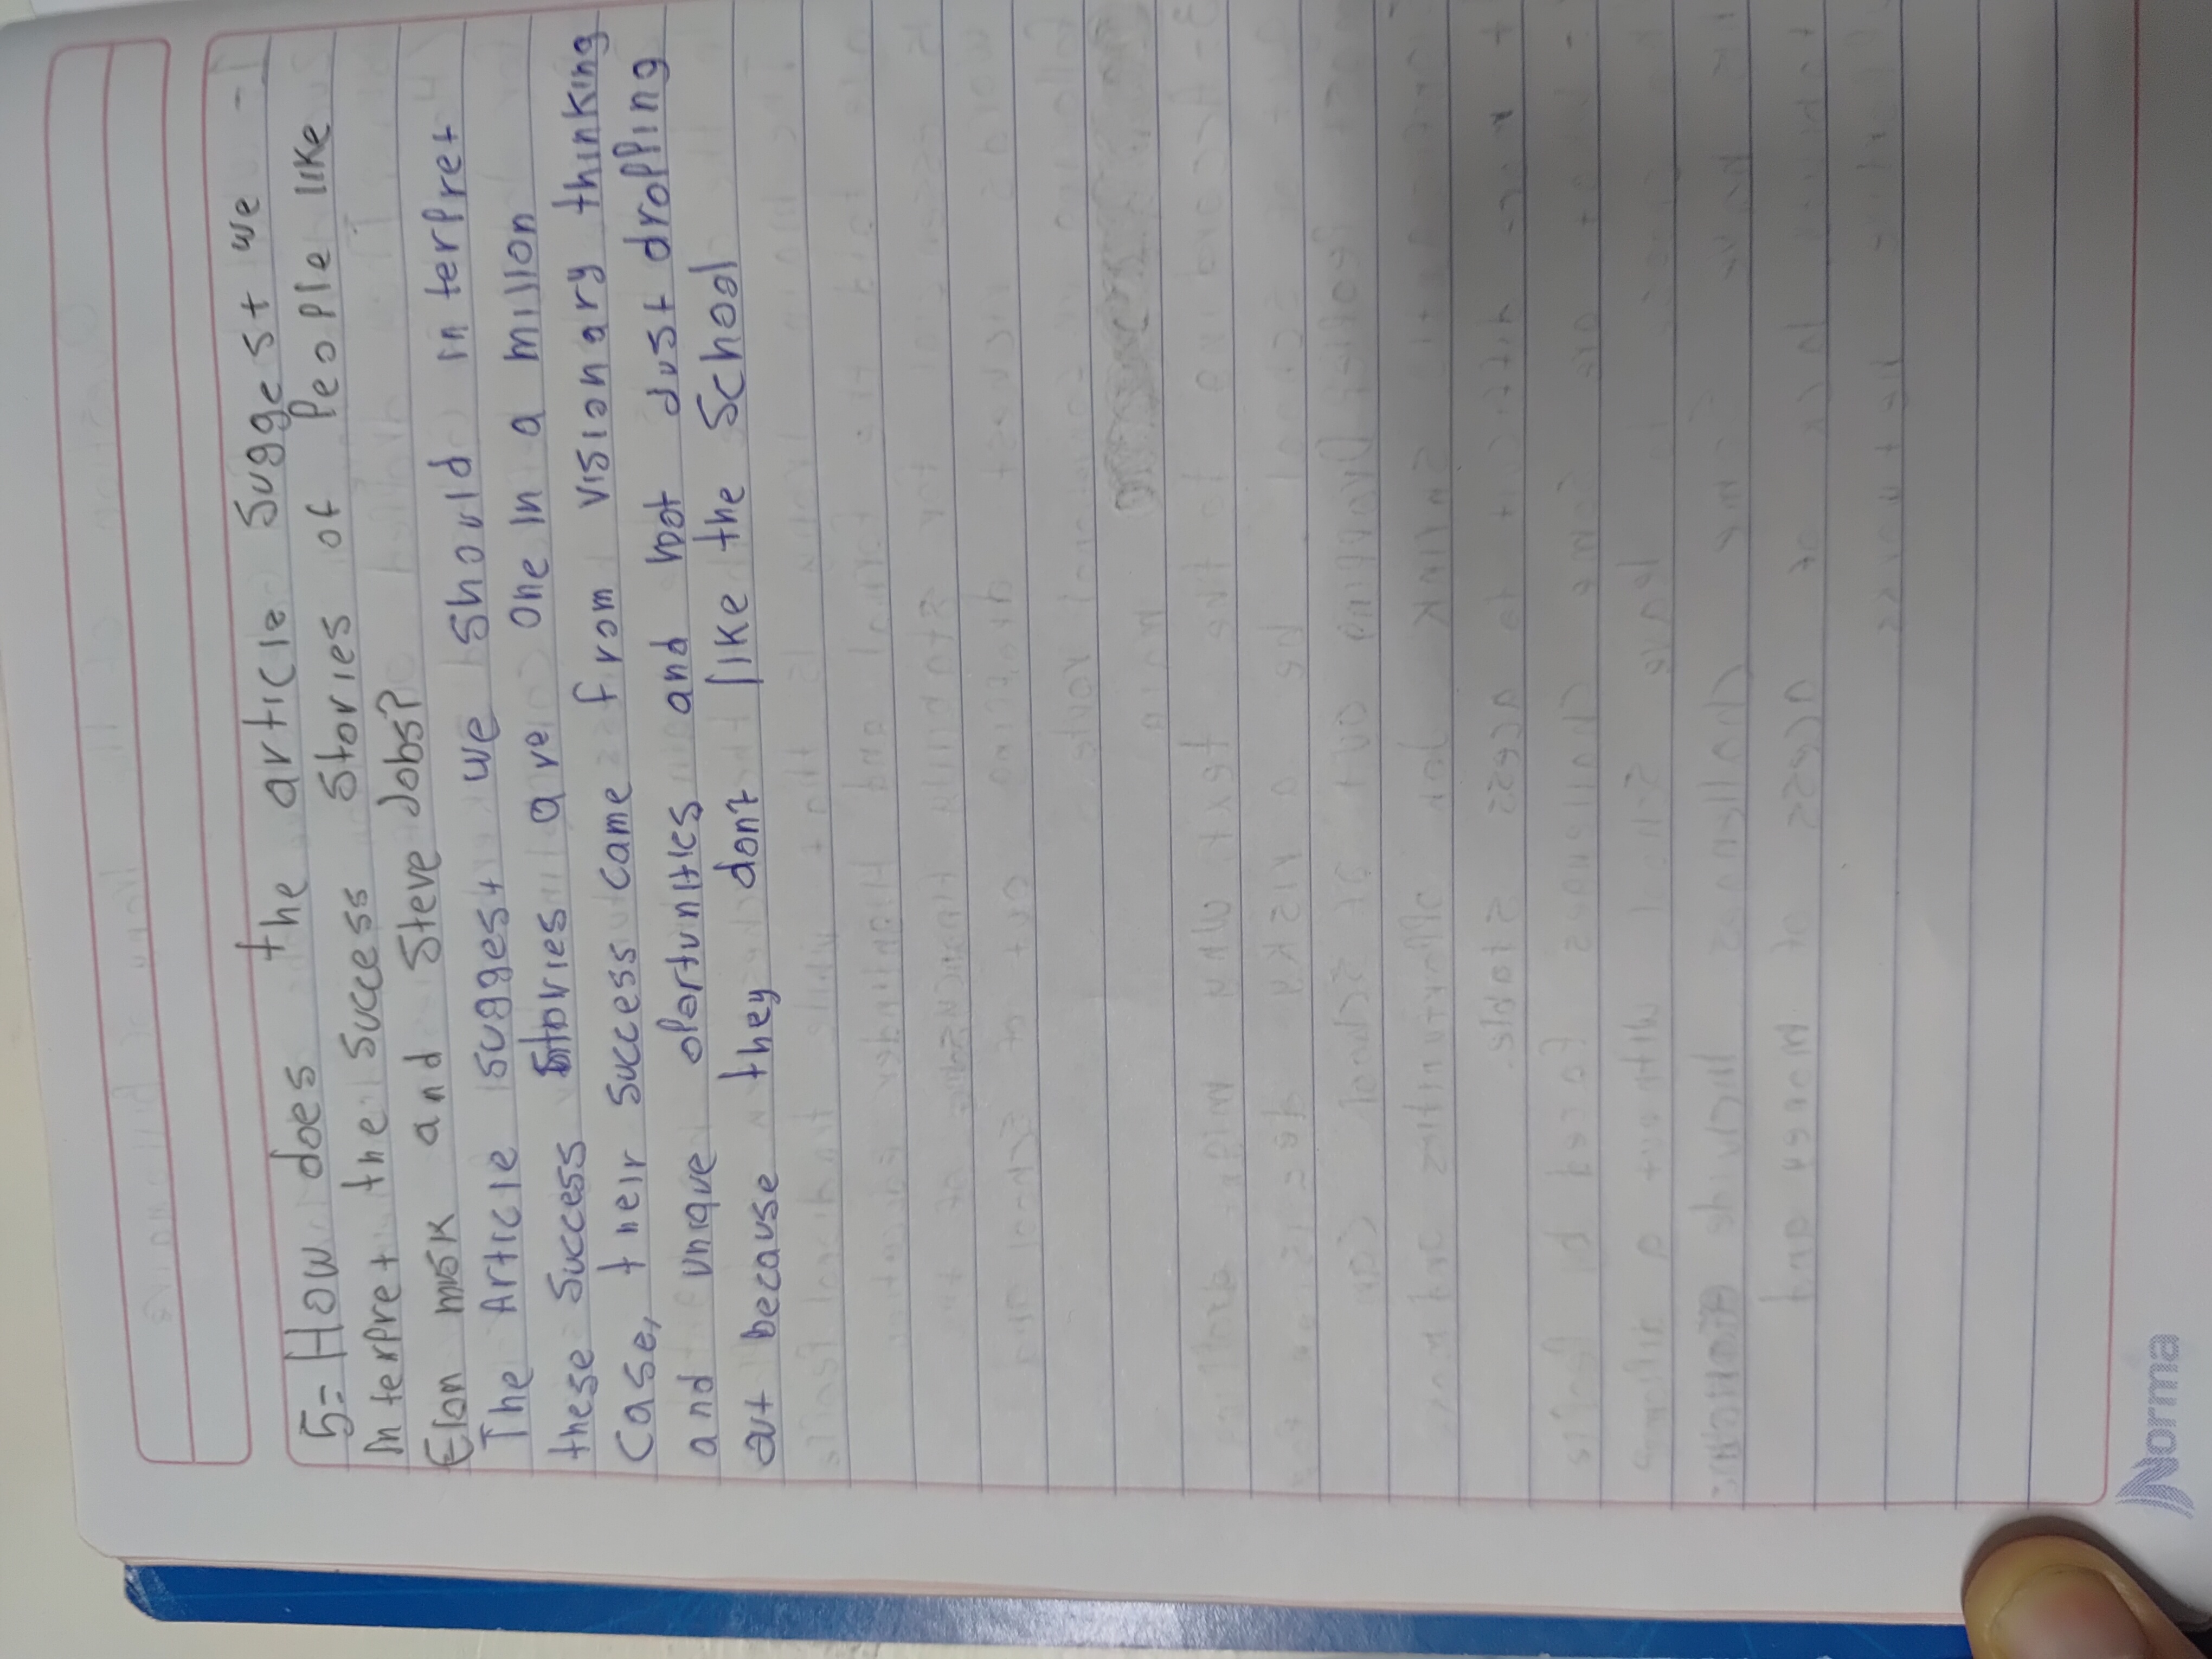 5= How does the article suggest we -
interpret the success stories of people like
Elon musk and Steve Jobs?
The Article suggest we should interpret
these success stories are one in a million
Case, their success came from visionary thinking
and unique oportunities and not Just dropping
out because they don't like the School
Norma